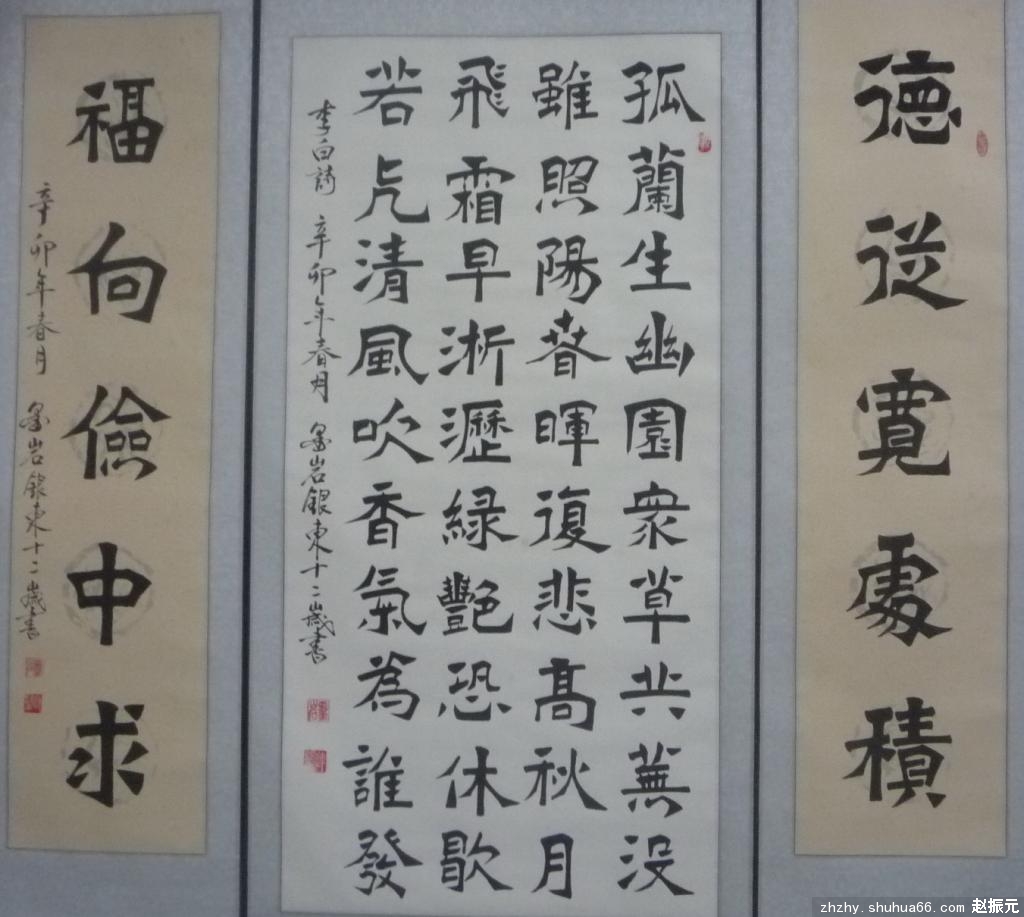 德從寬處積
孤蘭生幽園衆草共蕪没
雖照陽春暉復悲髙秋月
飛霜早淅瀝緑艷恐休歇
若无清風吹香氣為誰發
李白詩 辛卯年春月 墨岩銀東十二歲書
福向儉中求
辛卯年春月 墨岩銀東十二歲書
zhzhy.shuhua66.com 赵振元